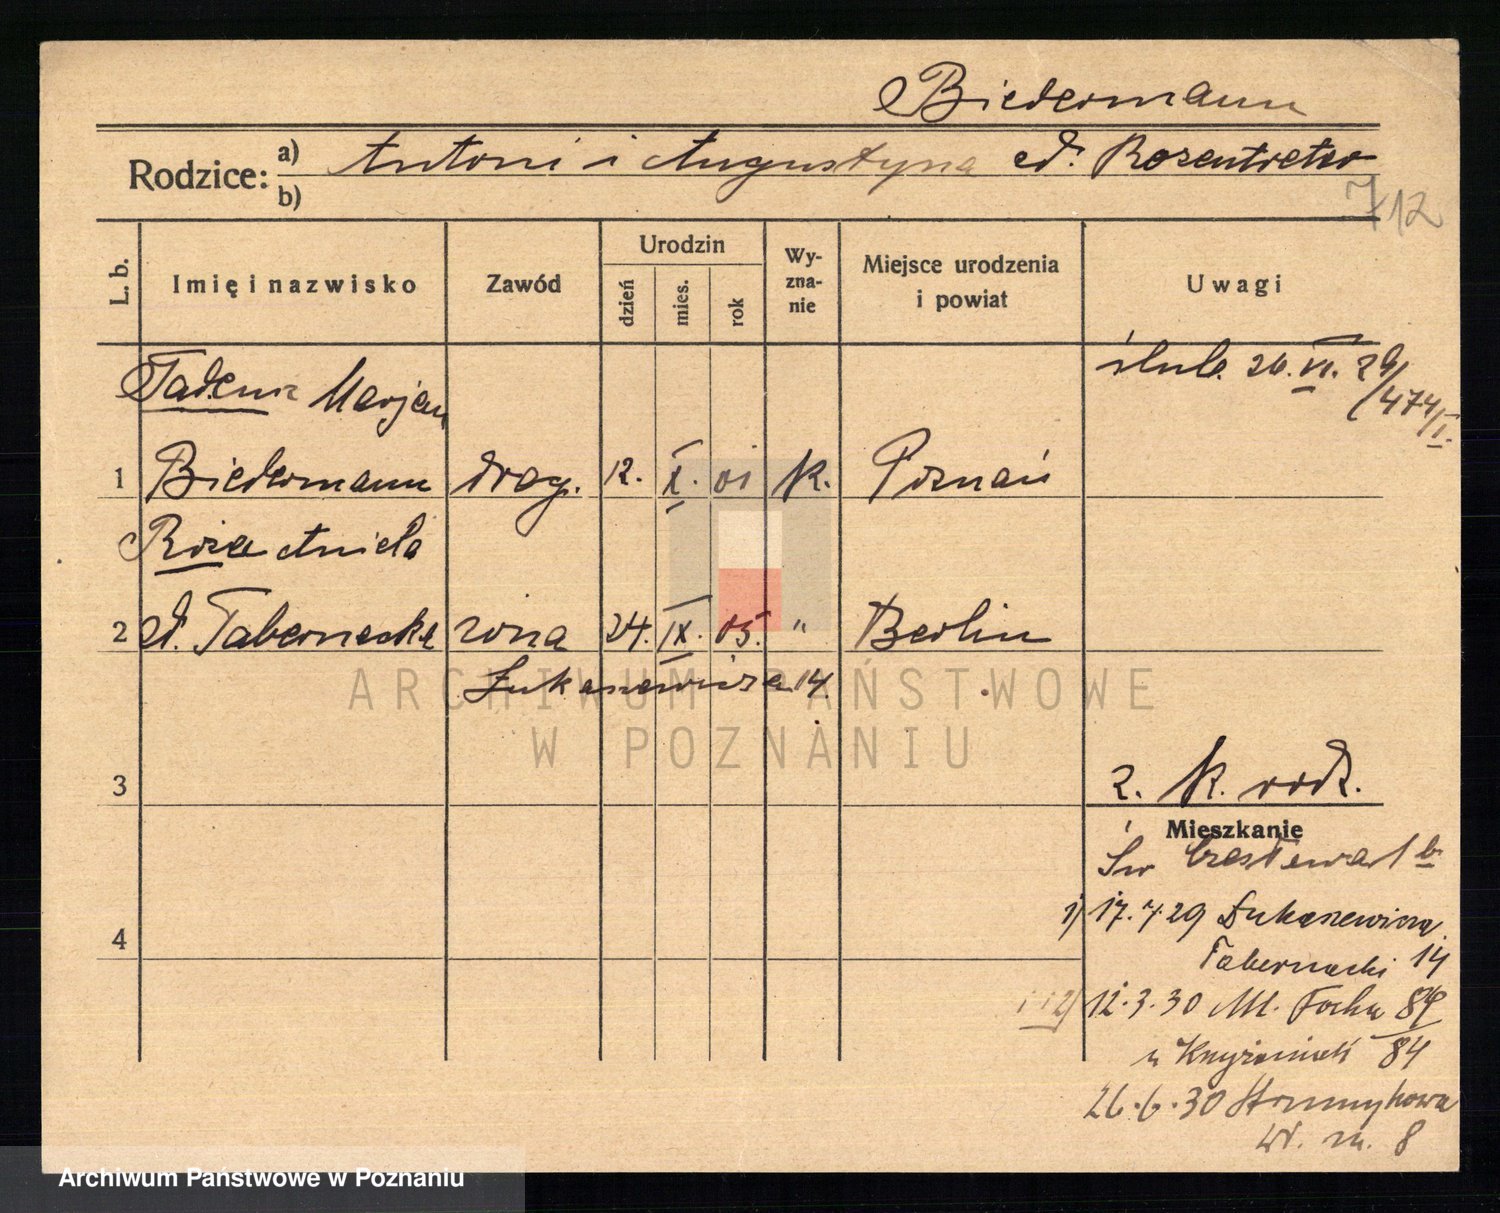 Biedermann
Rodzice: a) Antoni i Augustyna cd. Rosentreter
b)
712
L. b. Imię i nazwisko Zawód Urodzin dzień mies. rok Wyznanie Miejsce urodzenia i powiat Uwagi
Tadeusz Marjan
ślub. 26. VI. 29/474/I.
1 Biedermann drog. 12. X. 01 k. Poznań
Róża Aniela
2 cd. Tabernacka żona 24. IX. 05. " Berlin
Łukaszewicza 14
ARCHIWUM PAŃSTWOWE
W POZNANIU
3
2. K. rodz.
Mieszkanie
Św Czesława 1 b
1) 17.7.29 Łukaszewicza
4
Tabernacki 14
2) 12.3.30 M. Focha 84
u 84
26.6.30 Strumykowa
m. 8
Archiwum Państwowe w Poznaniu